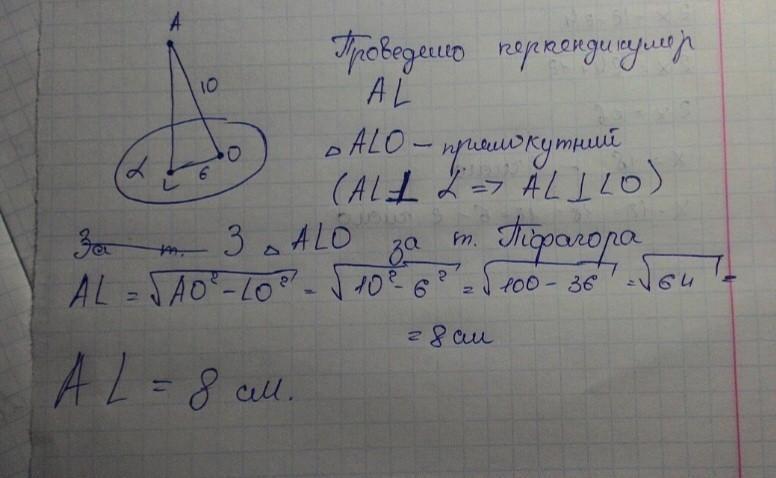 A
10
α
L
6
O
Проведемо перпендикуляр
AL
△ALO – прямокутний
(AL⊥ α => AL⊥LO)
За т. З △ALO за т. Піфагора
AL = √AO²-LO² = √10²-6² = √100-36 = √64 =
= 8 см
AL = 8 см.